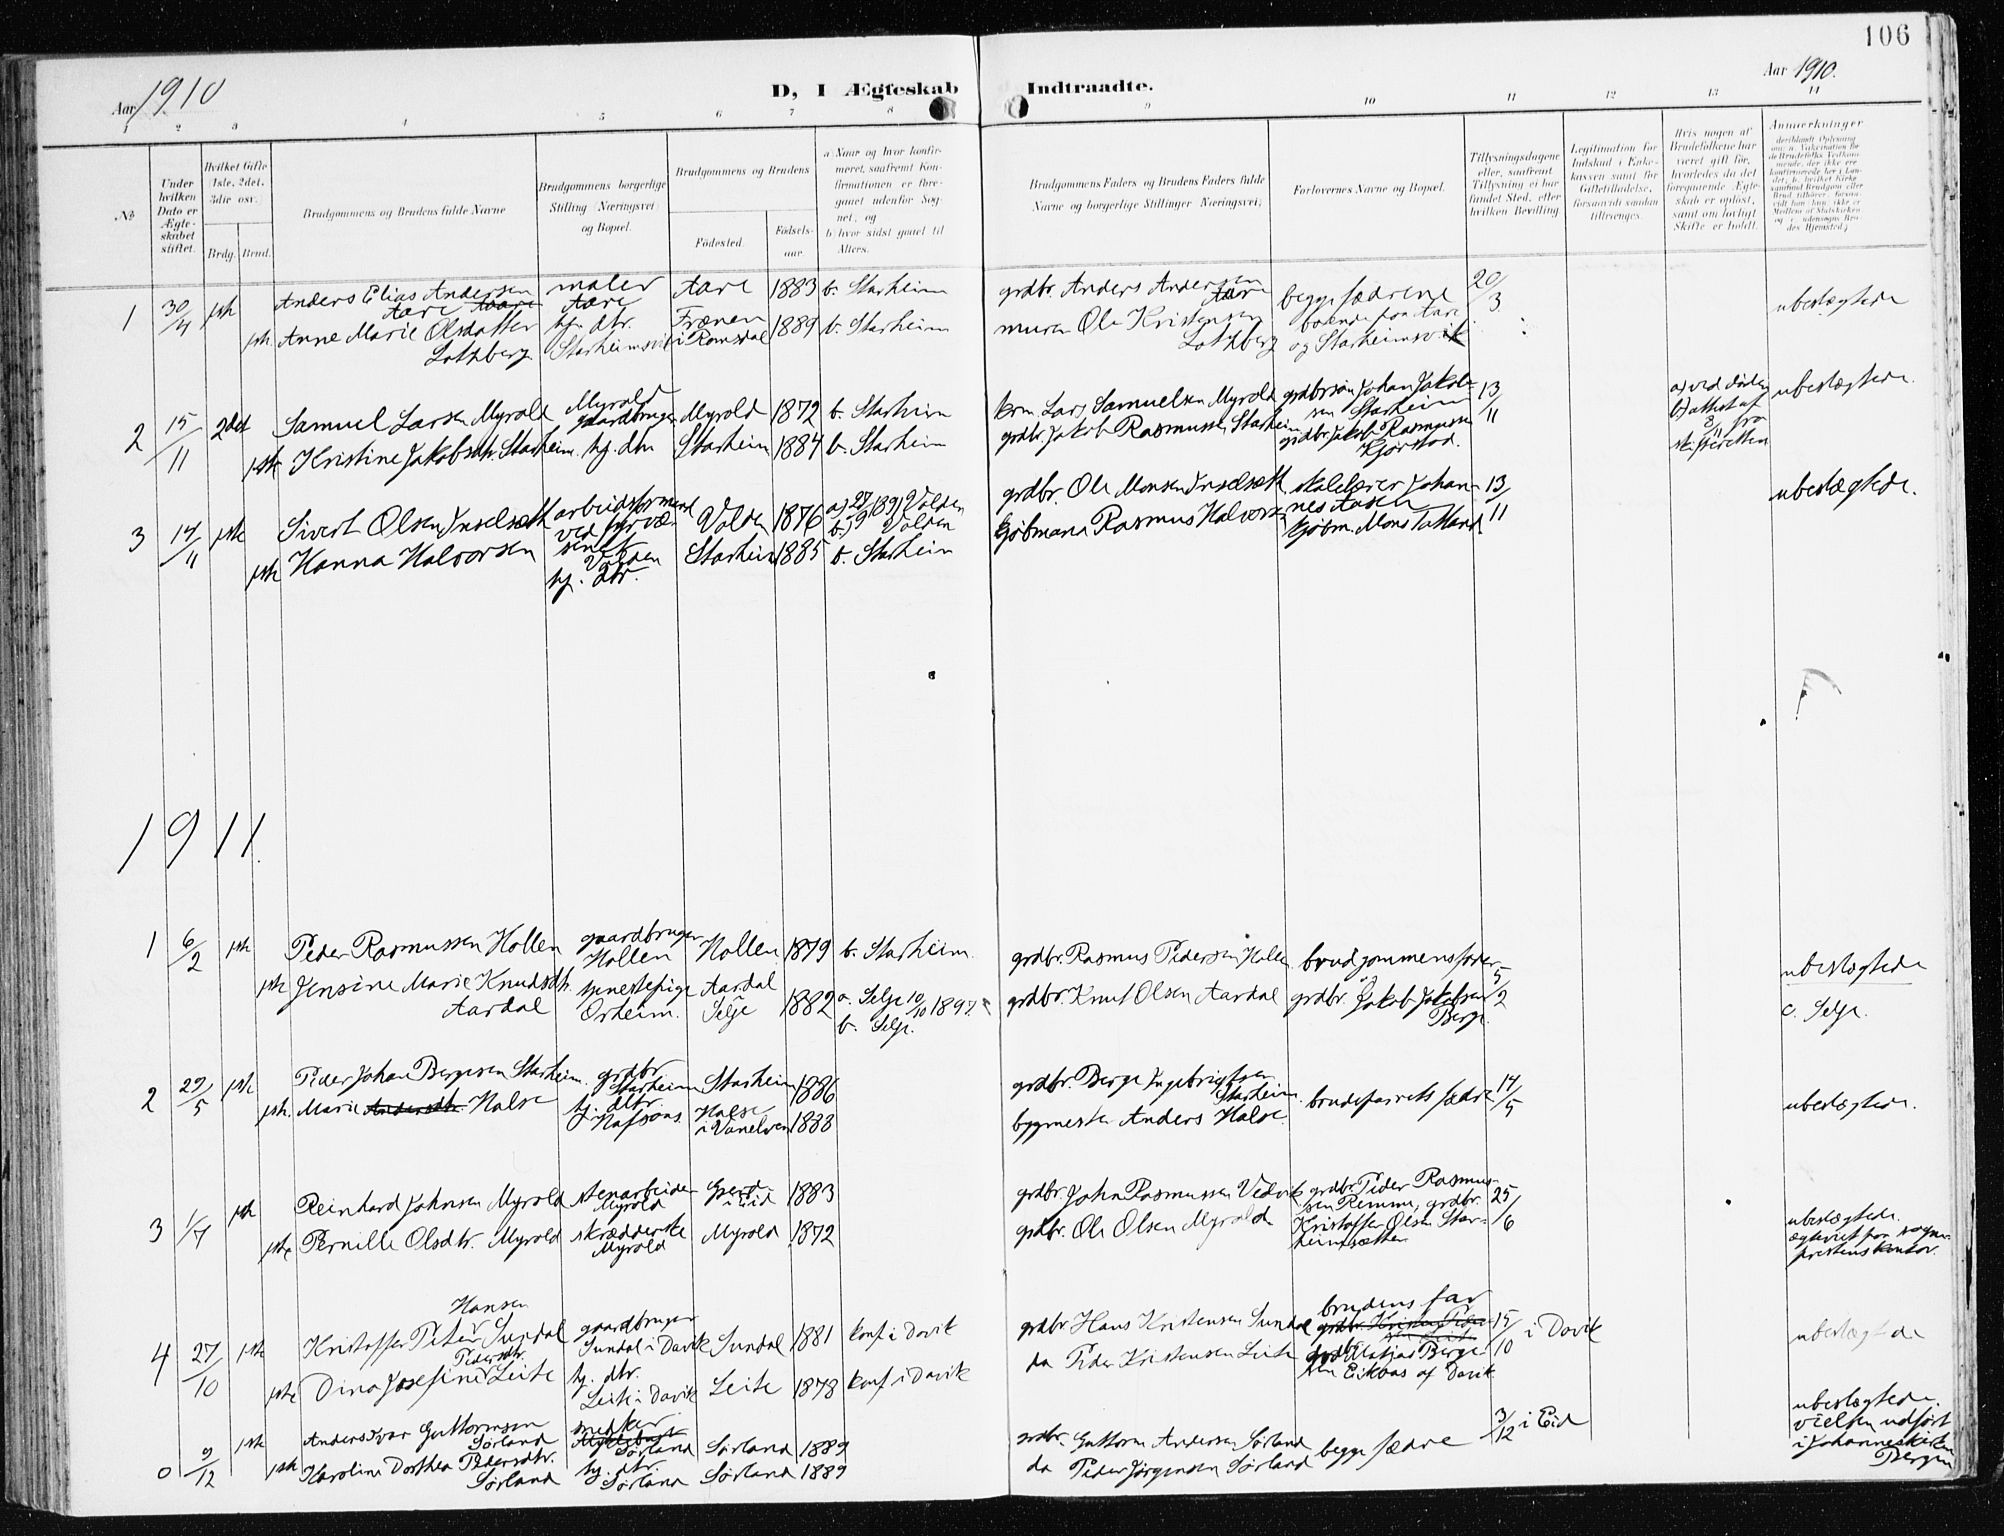 106
Aar 1910
D, I Ægteskab Indtraadte.
Aar 1910.
1 2 3 4 5 6 7 8 9 10 11 12 13 14
No
Under hvilken Dato er Ægteskabet stiftet.
Hvilket Gifte 1ste, 2det, 3die osv.
Brdg. Brud.
Brudgommens og Brudens fulde Navne
Brudgommens borgerlige Stilling (Næringsvei) og Bopæl.
Brudgommens og Brudens
Fødested.
Fødselsaar
a) Naar og hvor konfirmeret, saafremt Konfirmationen er foregaaet udenfor Sognet, og
b) hvor sidst gaaet til Alters.
Brudgommens Faders og Brudens Faders fulde Navne og borgerlige Stillinger (Næringsvei)
Forlovernes Navne og Bopæl.
Tillysningsdagene eller, saafremt Tillysning ei har fundet Sted, efter hvilken Bevilling
Legitimation for Indskud i Enkekassen samt for Giftetilladelse, forsaavidt saadan tiltrænges.
Hvis nogen af Brudefolkene har været gift før, hvorledes da det foregaaende Ægteskab er opløst, samt om lovligt Skifte er holdt.
Anmerkninger
1 30/4 1ste Anders Elias Andersen Aare maler Aare Aare 1883 b. Starheim grdbr. Anders Andersen Aare begge fædrene 20/3 ubeslægtede
1ste Anne Marie Olsdatter Lothberg hj. dtr. Starheimsvik Frænen i Romsdal 1889 b. Starheim murer Ole Kristensen Lothberg boende paa Aare og Starheimsvik
2 15/11 2det Samuel Larsen Myrold Myrold gaardbruger Myrold 1872 b. Starheim krm. Lars Samuelsen Myrold grdbrsøn Johan Jakobsen Starheim 13/11 a) ved døden b) attest af fra skifteretten ubeslægtede.
1ste Kristine Jakobsdtr. Starheim. hj. dtr Starheim 1884 b. Starheim grdbr. Jakob Rasmussen Starheim grdbr. Jakob Rasmussen Kjørstad.
3 14/11 1ste Sivert Olsen arbeidsformand ved Volden Volden 1876 a) 27/9 1891 Volden b) Volden grdbr. Ole Monsen skolelærer Johannes Aasen 13/11 ubeslægtede.
1ste Hanna Halvorsen hj. dtr. Starheim 1885 b. Starheim kjøbmand Rasmus Halvorsen kjøbm. Mons
1911.
1 6/2 1ste Peder Rasmussen Hollen gaardbruger Hollen Hollen 1879 b. Starheim. grdbr. Rasmus Pedersen Hollen brudgommens fader og 5/2 ubeslægtede
1ste Jensine Marie Knudsdtr. Aardal tjenestepige Orheim. Aardal Selje 1882 a. Selje 10/10 1897. b. Selje. grdbr. Knut Olsen Aardal grdbr. Jakob Jakobsen Berge. c. Selje.
2 29/5 1ste Peder Johan Bergesen Starheim. grdbr Starheim Starheim 1886 grdbr. Berge Ingebrigtsen Starheim brudeparrets fædre 14/5 ubeslægtede.
1ste. Marie Andersdtr. Halse hj. dtr. Hafsaas. Halse i Vanelven 1888 bygmester Anders Halse.
3 1/7 1ste Reinhard Johnsen Myrold stenarbeider Myrold i Eid 1883 grdbr. John Rasmussen Vedvik grdbr. Peder Rasmussen grdbr. 25/6 ubeslægtede.
1ste Pernille Olsdtr. Myrold skrædderske Myrold Myrold 1872 grdbr. Ole Olsen Myrold Kristoffer Olsen Starheimsætten ægteviet paa sogneprestens kontor.
4 27/10 1ste Kristoffer Peter Hansen Sundal gaardbruger Sundal i Davik Sundal 1881 konf. i Davik grdbr Hans Kristensen Sundal brudens far 15/10 i Davik ubeslægtede
1ste Dina Josefine Pedersdtr. Leite hj. dtr. Leite i Davik Leite 1878 konf. i Davik do Peder Kristensen Leite Matias Bergesen Eikaas af Davik
0 9/12 1ste Anders Ivar Guttormsen Sørland Sørland Sørland 1889 grdbr. Guttorm Andersen Sørland begge fædre 3/12 i Eid ubeslægtede. vielsen udført i Johanneskirken Bergen
1ste Karoline Dorthea Pedersdtr. Sørland hj. dtr. Sørland Sørland 1889 do Peder Jørgensen Sørland